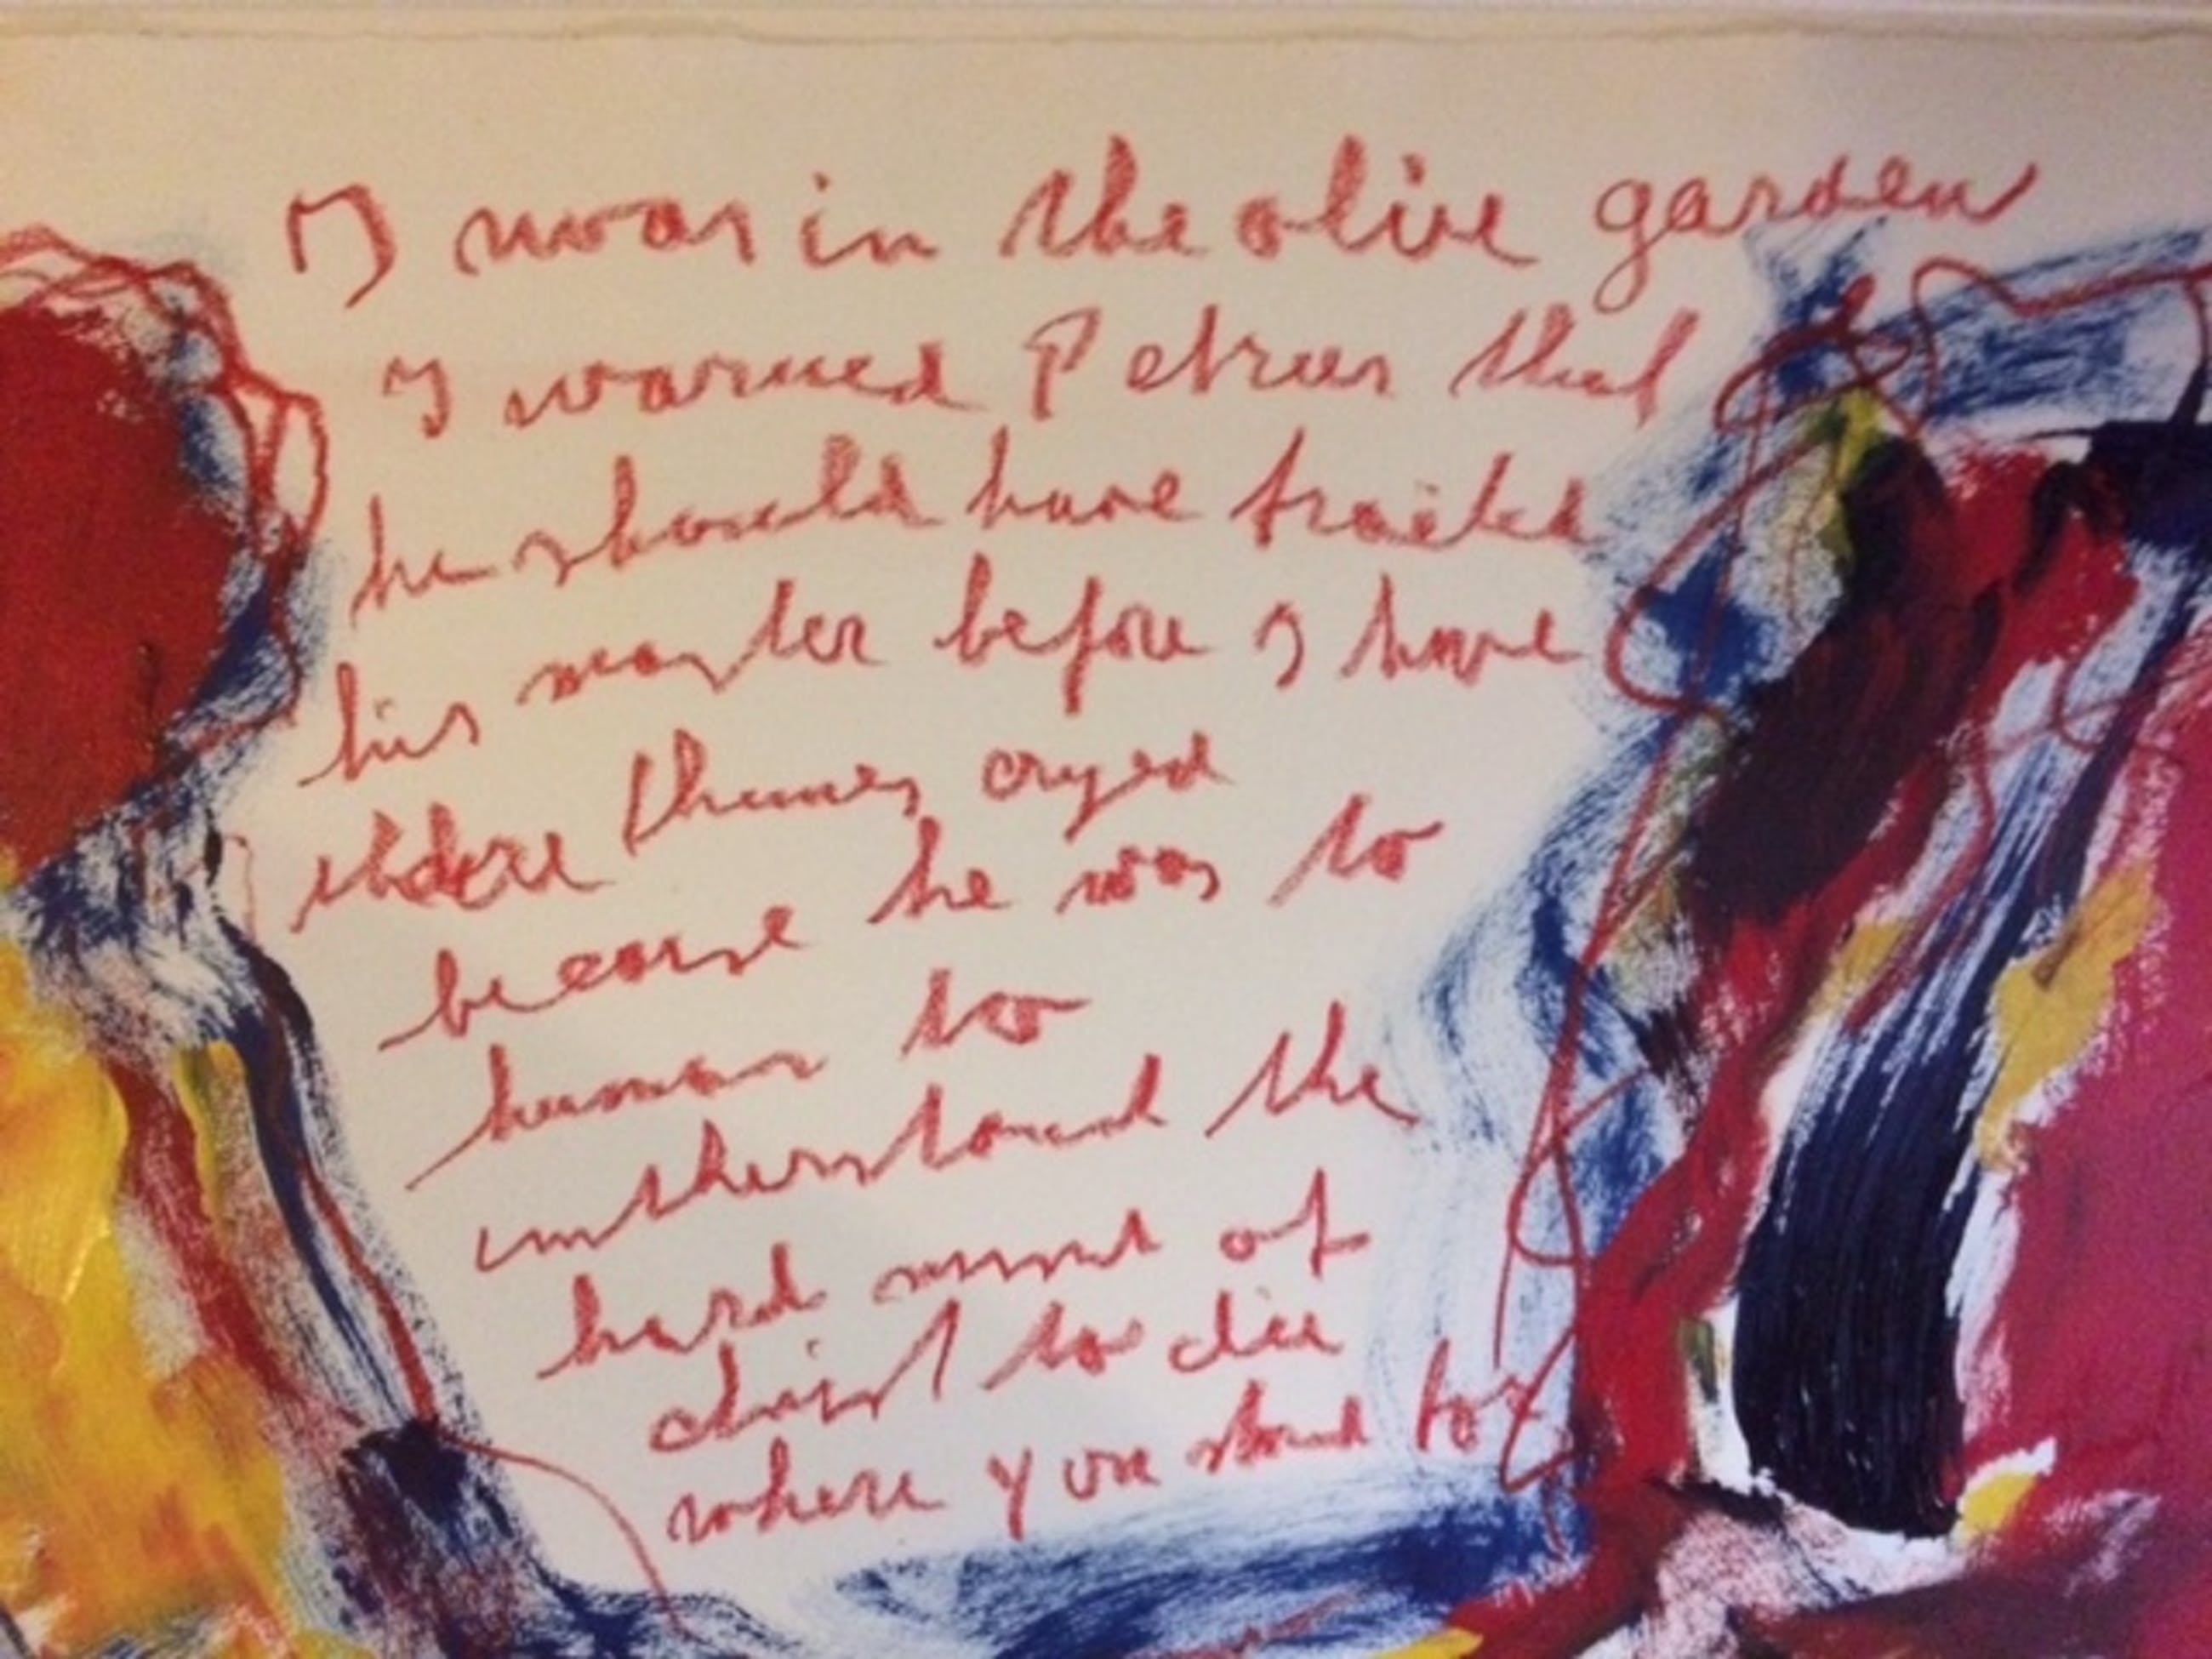 I was in the olive garden
I warned Petrus that
he should have traited
his master before I have
there thimes cryed
becorse he was to
human to
untherstand the
hard of
christ to die
where you stand for